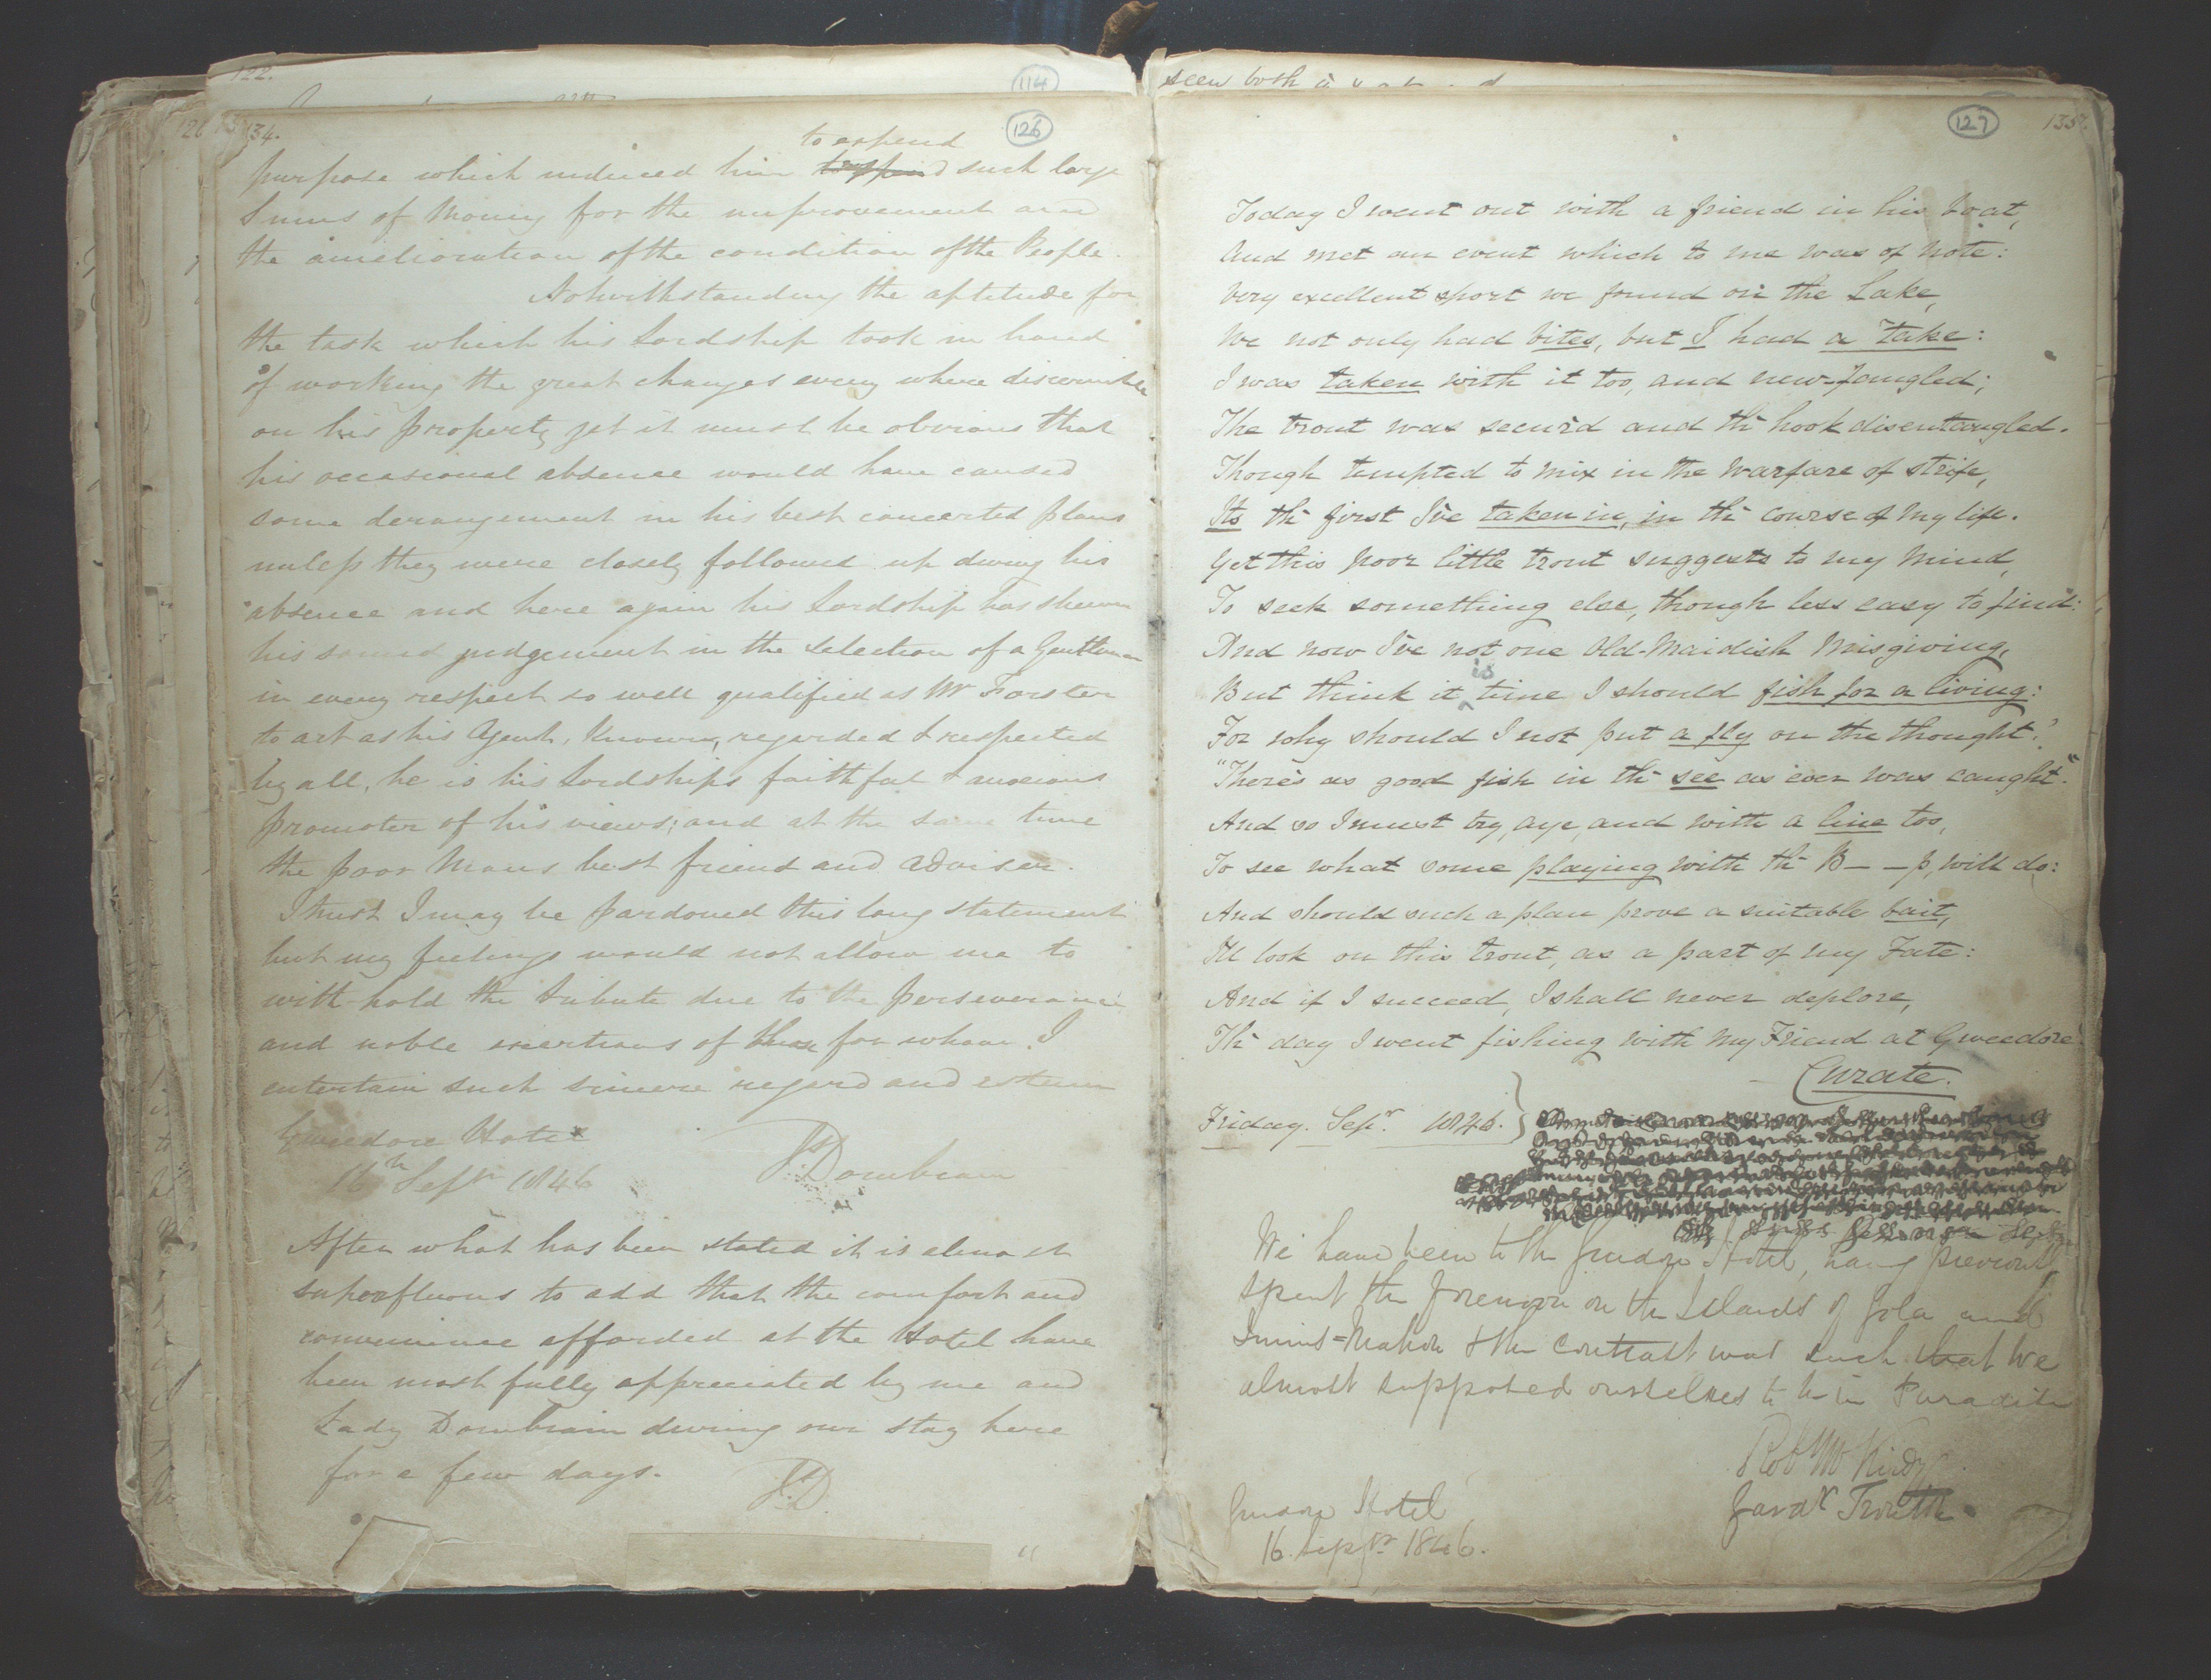 122.
114
134.
126
to expend
purpose which induced him such large
Sums of Money for the improvement and
the amelioration of the condition of the People.
Notwithstanding the aptitude for
the task which his Lordship took in hand
of working the great changes every where discernible
on his property yet it must be obvious that
his occasional absence would have caused
some derangement in his best concerted plans
unless they were closely followed up during his
absence and here again his Lordship has shewn
his sound judgement in the selection of a Gentleman
in every respect so well qualified as Mr Forster
to act as his Agent. Known, regarded & respected
by all, he is his Lordships faithful & anxious
promoter of his views; and at the same time
the poor Mans best friend and adviser.
I trust I may be pardoned this long statement
but my feelings would not allow me to
with-hold the tribute due to the perseverance
and noble exertions of those for whom I
entertain such sincere regard and esteem
Gweedore Hotel
16th Septr 1846
Js Dombrain
After what has been stated it is almost
superfluous to add that the comfort and
convenience afforded at the Hotel have
been most fully appreciated by me and
Lady Dombrain during our stay here
for a few days.
Js D.
seen both
127
135.
Today I went out with a friend in his boat,
And met an event which to me was of note:
Very excellent sport we found on the Lake,
We not only had bites, but I had a take:
I was taken with it too, and new-fangled;
The trout was secur'd and the hook disentangled.
Though tempted to mix in the warfare of strife,
Its the first I've taken in, in the course of my life.
Yet this poor little trout suggests to my mind,
To seek something else, though less easy to find:
And now I've not one Old-Maidish Misgiving,
But think it is time I should fish for a living:
For why should I not put a fly on the thought?
"There's as good fish in the see as ever was caught".
And so I must try, aye, and with a line too,
To see what some playing with the B--p, will do:
And should such a plan prove a suitable bait,
I'll look on this trout, as a part of my Fate:
And if I succeed, I shall never deplore,
The day I went fishing with my Friend at Gweedore
Curate.
Friday. Sepr. 1846.
We have been to the Gweedore Hotel, having previously
spent the forenoon on the Islands of Gola and
Innis=Mahon & the contrast was such that we
almost supposed ourselves to be in Paradise
Robt Mc
Gweedore Hotel
16. Septr 1846.